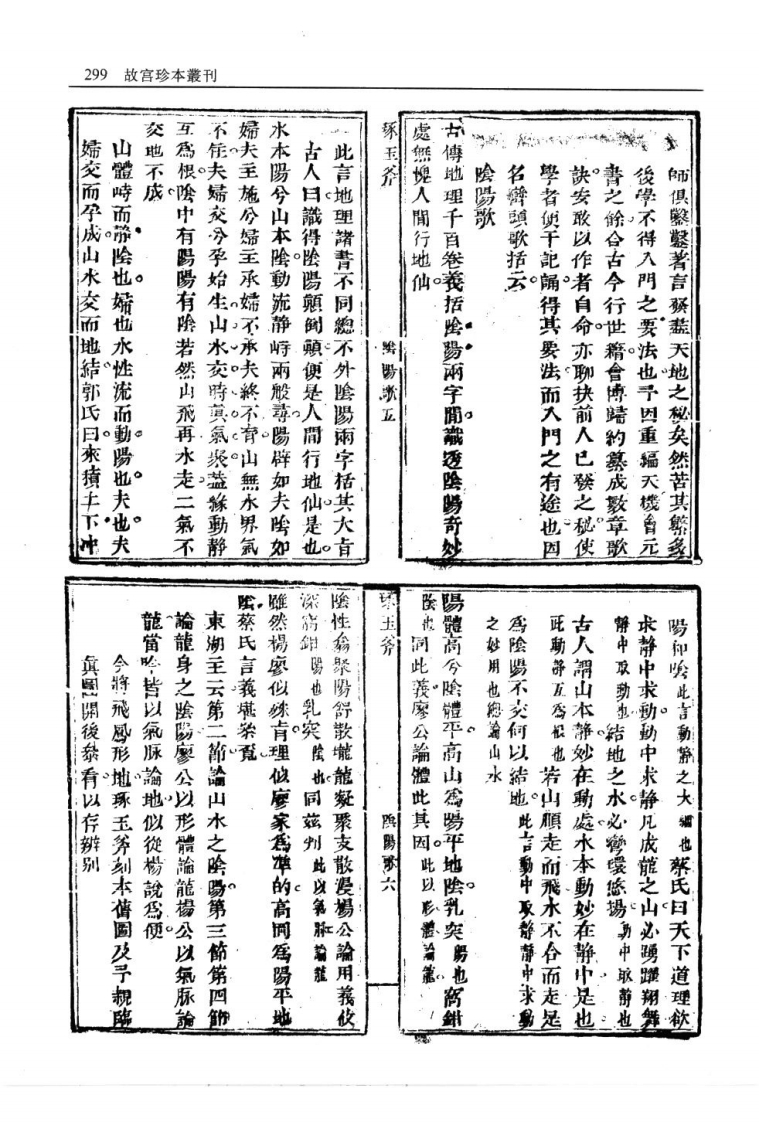 299 故宮珍本叢刊
師俱繫鑿著言發蓋天地之秘矣然苦其繁多
後學不得入門之要法也予因重編天機會元
書之餘合古今行世籍會博歸約纂成數章歌
訣安敢以作者自命亦聊抉前人已發之秘使
學者便于記誦得其要法而入門之有途也因
名轡頭歌括云
陰陽歌
古傳地理千百卷義括陰陽兩字間識透陰陽奇妙
處無愧人間行地仙
琢玉斧
陰陽歌五
此言地理諸書不同總不外陰陽兩字括其大旨
古人曰識得陰陽顛倒顛便是人間行地仙是也
水本陽兮山本陰動流靜峙兩般尋陽辟如夫陰如
婦夫主施兮婦主承婦不承夫終不育山無水界氣
不任夫婦交兮孕始生山水交時真氣聚蓋緣動靜
互為根陰中有陽陽有陰若然山飛再水走二氣不
交地不成
山體峙而靜陰也婦也水性流而動陽也夫也夫
婦交而孕成山水交而地結郭氏曰來積止下冲
陽仰陰此言動靜之大綱也蔡氏曰天下道理欲
求靜中求動動中求靜凡成龍之山必踴躍翔舞
靜中取動也結地之水必彎環悠揚動中取靜也
古人謂山本靜妙在動處水本動妙在靜中是也
此動靜互為根也若山順走而飛水不合而走是
為陰陽不交何以結地此言動中取靜靜中求動
之妙用也總論山水
陽體高兮陰體平高山為陽平地陰乳突陽也窩鉗
陰也同此義廖公論體此其因此以形體論龍
琢玉斧
陰陽歌六
陰性翕聚陽舒散壠龍凝聚支散漫楊公論用義攸
深窩鉗陽也乳突陰也同茲判此以氣脈論龍
雖然楊廖似殊肯理似廖家為準的高同為陽平地
陰蔡氏言義堪叅覓
東湖主云第二節論山水之陰陽第三節第四節
論龍身之陰陽廖公以形體論龍楊公以氣脈論
龍當時皆以氣脈論地似從楊說為便
今將飛鳳形地琢玉斧刻本舊圖及予親臨
真圖開後叅看以存辨別